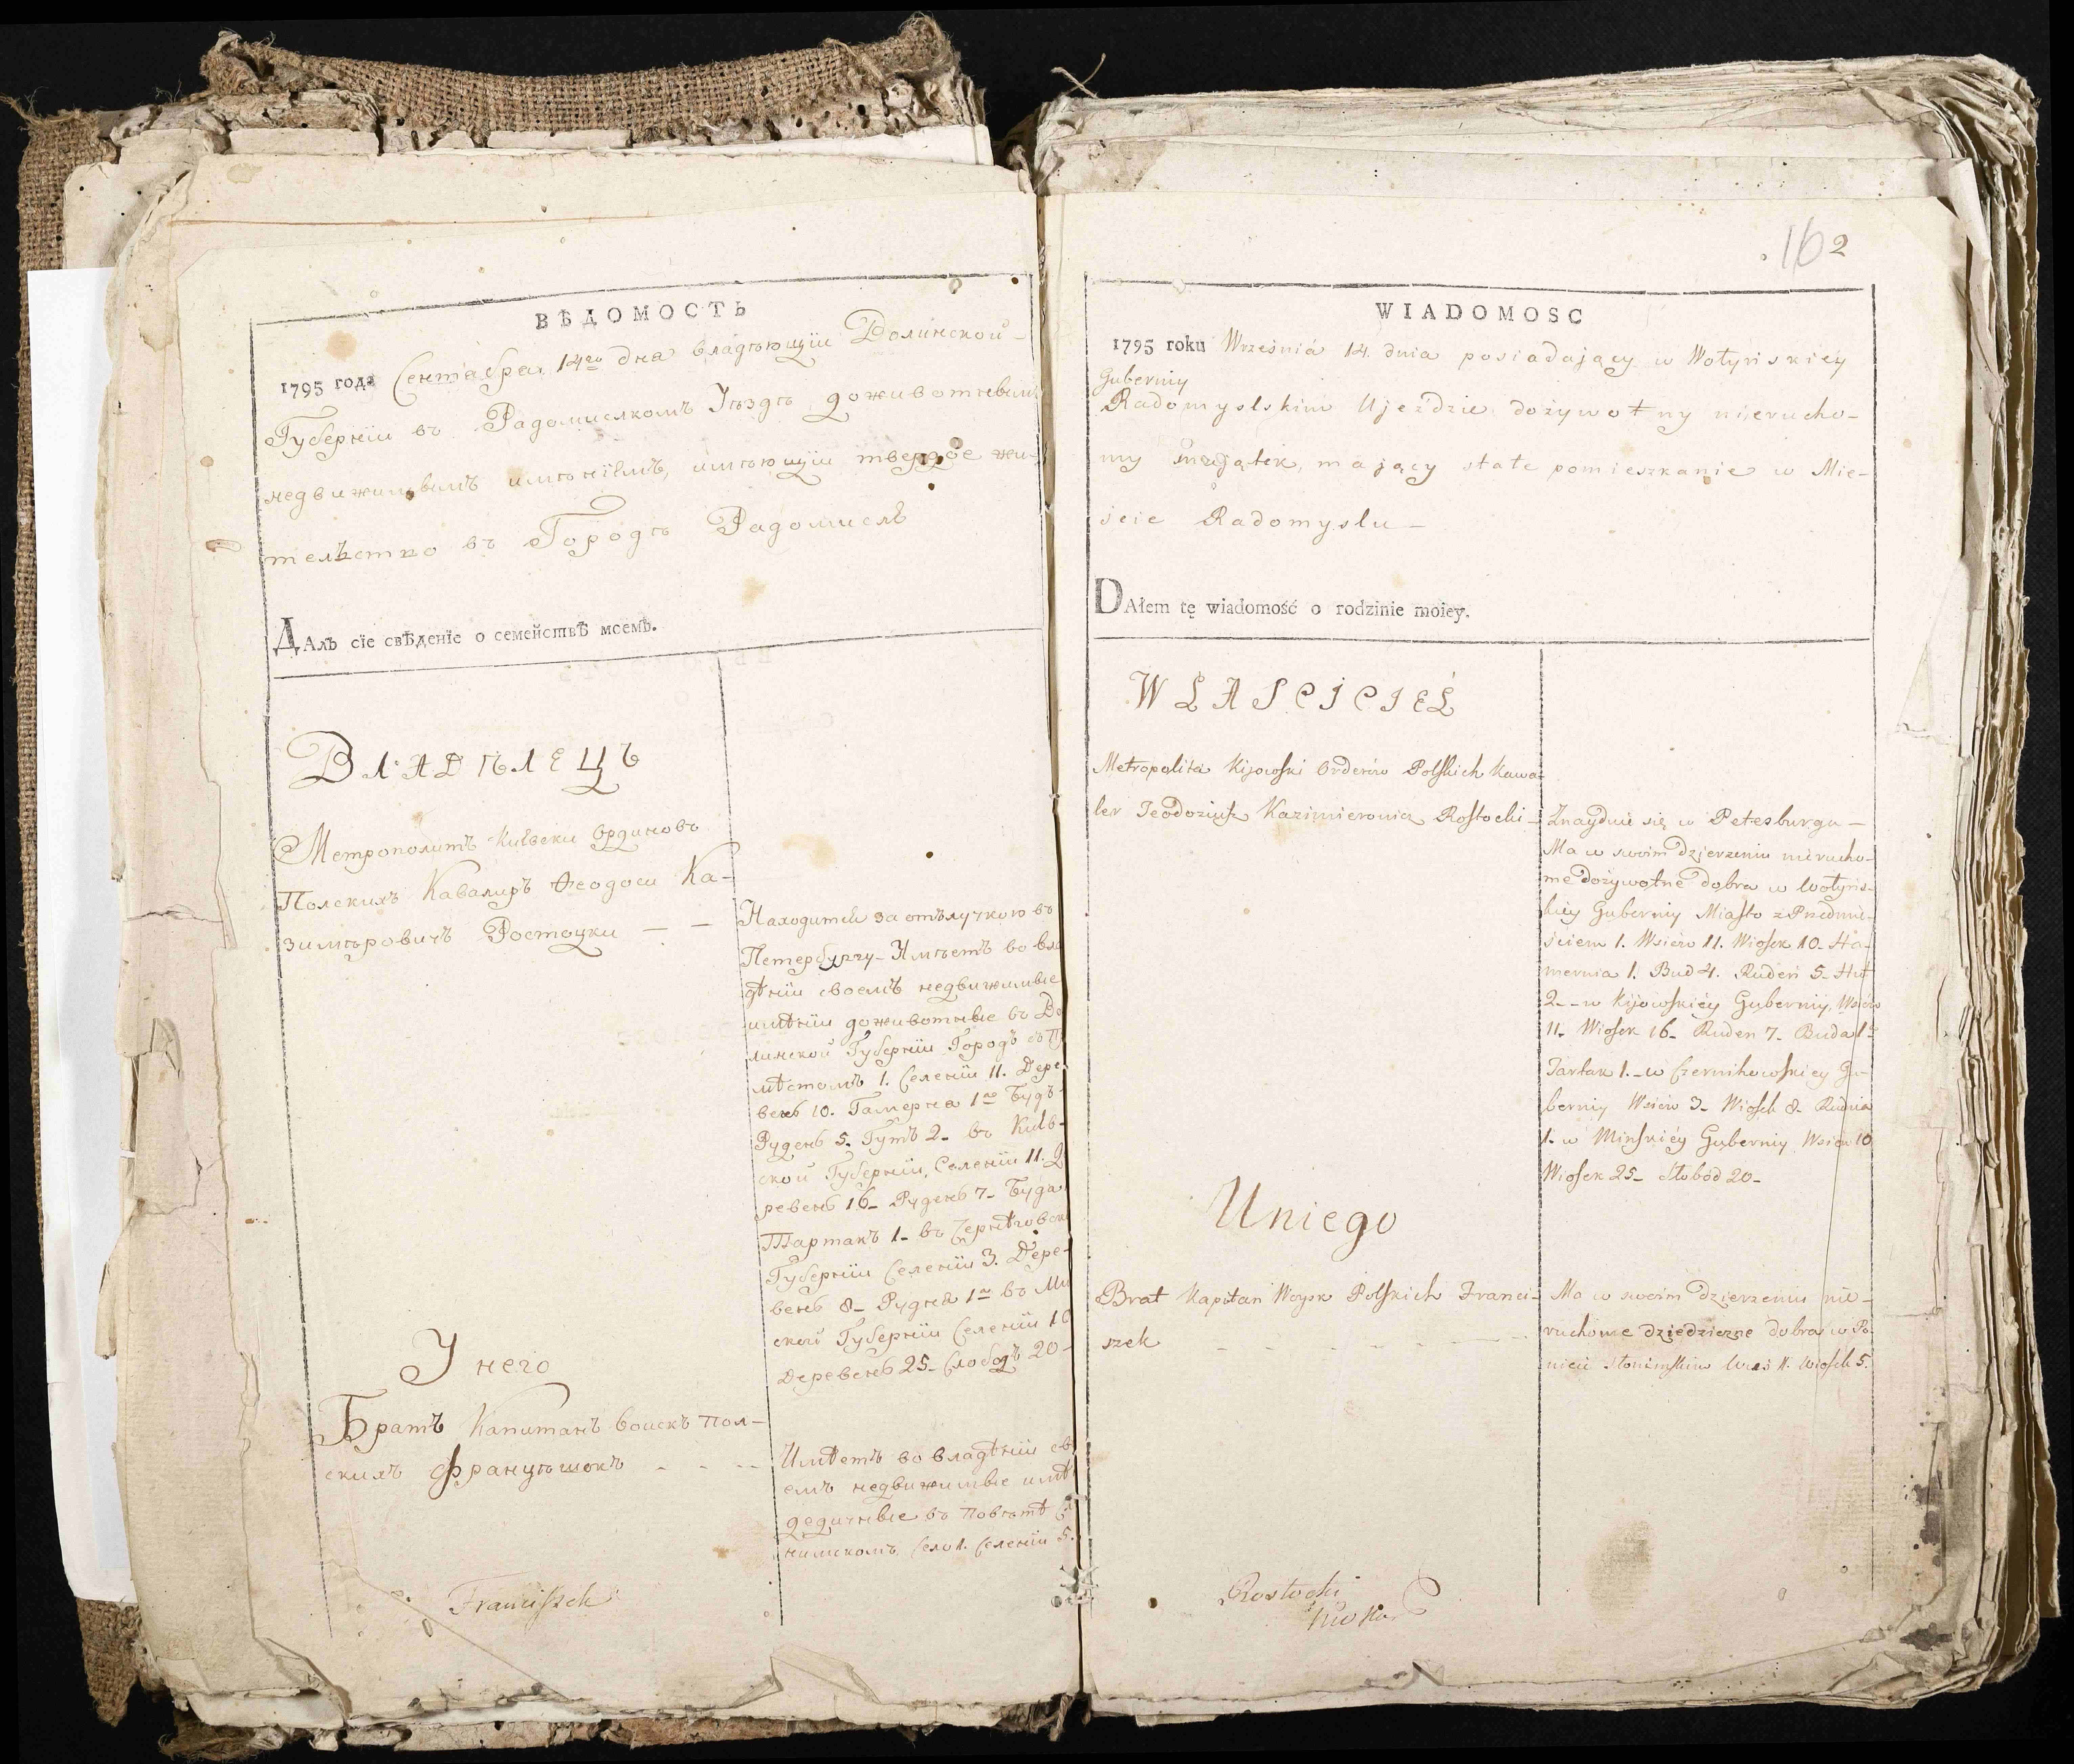 ВѢДОМОСТЬ
1795 года Сентабра 14го дна владѣющїи Волинской
Губернїи въ Радомислкомъ Уѣздѣ доживотнѣвимъ
недвижимымъ имѣнїемъ, имѣющїи твердое жи-
телѣство въ Городѣ Радомислѣ
ДАлъ сїе свѣденїе о семействѣ моемъ.
ВЛАДѢЛЕЦЪ
Метрополитъ Киевски Ординовъ
Полскихъ Кавалиръ Ѳеодоси Ка-
зимѣровичъ Ростоцки — —
Находится за отълучкою въ
Петербургу - Имѣетъ во вла
дѣнїи своемъ недвижимые
имѣнїи доживотные въ Во
линской Губернїи Городъ съ П
мѣстомъ 1. Селенїи 11. Дере
вень 10. Гамерна 1на Будъ
Рудень 5. Гутъ 2- въ Киев-
ской Губернїи, Селенїи 11. Д
ревень 16- Рудень 7- Буда
Тартакъ 1- въ Чернѣговск
Губернїи Селенїи 3. Дере-
вень 8- Рудня 1на въ Ми
ской Губернїи Селенїи 10
Деревень 25- Слободъ 20-
У него
Братъ Капитанъ воискъ пол-
скихъ Францѣшекъ - - -
Имѣетъ во владѣнїи св
емъ недвижимые имѣ
дедичные въ Повѣтѣ С
нимскомъ Село 1. Селенїи 5.
Franciszek
162
WIADOMOSC
1795 roku Wrześniá 14. dnia posiadający w Wołyńskiéy
Guberniy
Radomyslskim Ujeździe dożywotny nierucho-
my majątek, mający stałe pomieszkanie w Mie-
ście Radomyslu -
DAłem tę wiadomość o rodzinie moiey.
WŁAŚCICIEL
Metropolita Kijowski Orderów Polskich Kawa-
ler Teodoziusz Kazimierowicz Rostocki -
Znayduie się w Petesburgu -
Ma w swoim Dzierzeniu nierucho-
me Dożywotne dobra w Wołyńs-
kiéy Guberniy Miasto z Przedmie-
ściem 1. Wsiów 11. Wiosek 10. Ha-
mernia 1. Bud 4. Rudeń 5- Hut
2-- w Kijowskiéy Guberniy, Wsiów
11. Wiosek 16- Ruden 7. Buda 1-
Tartak 1. - w Czernihowskiey Gu-
berniy Wsiów 3- Wiosek 8- Rudnia
1. w Mińskiéy Guberniy Wsiow 10
Wiosek 25- Słobód 20-
Uniego
Brat Kapitan Woysk Polskich Franci-
szek - - - - -
Ma w swoim dzierzeniu nie-
ruchome dziedziczne dobra w Po-
wiecie Słonimskim Wieś 1. Wiosek 5.
Rostocki